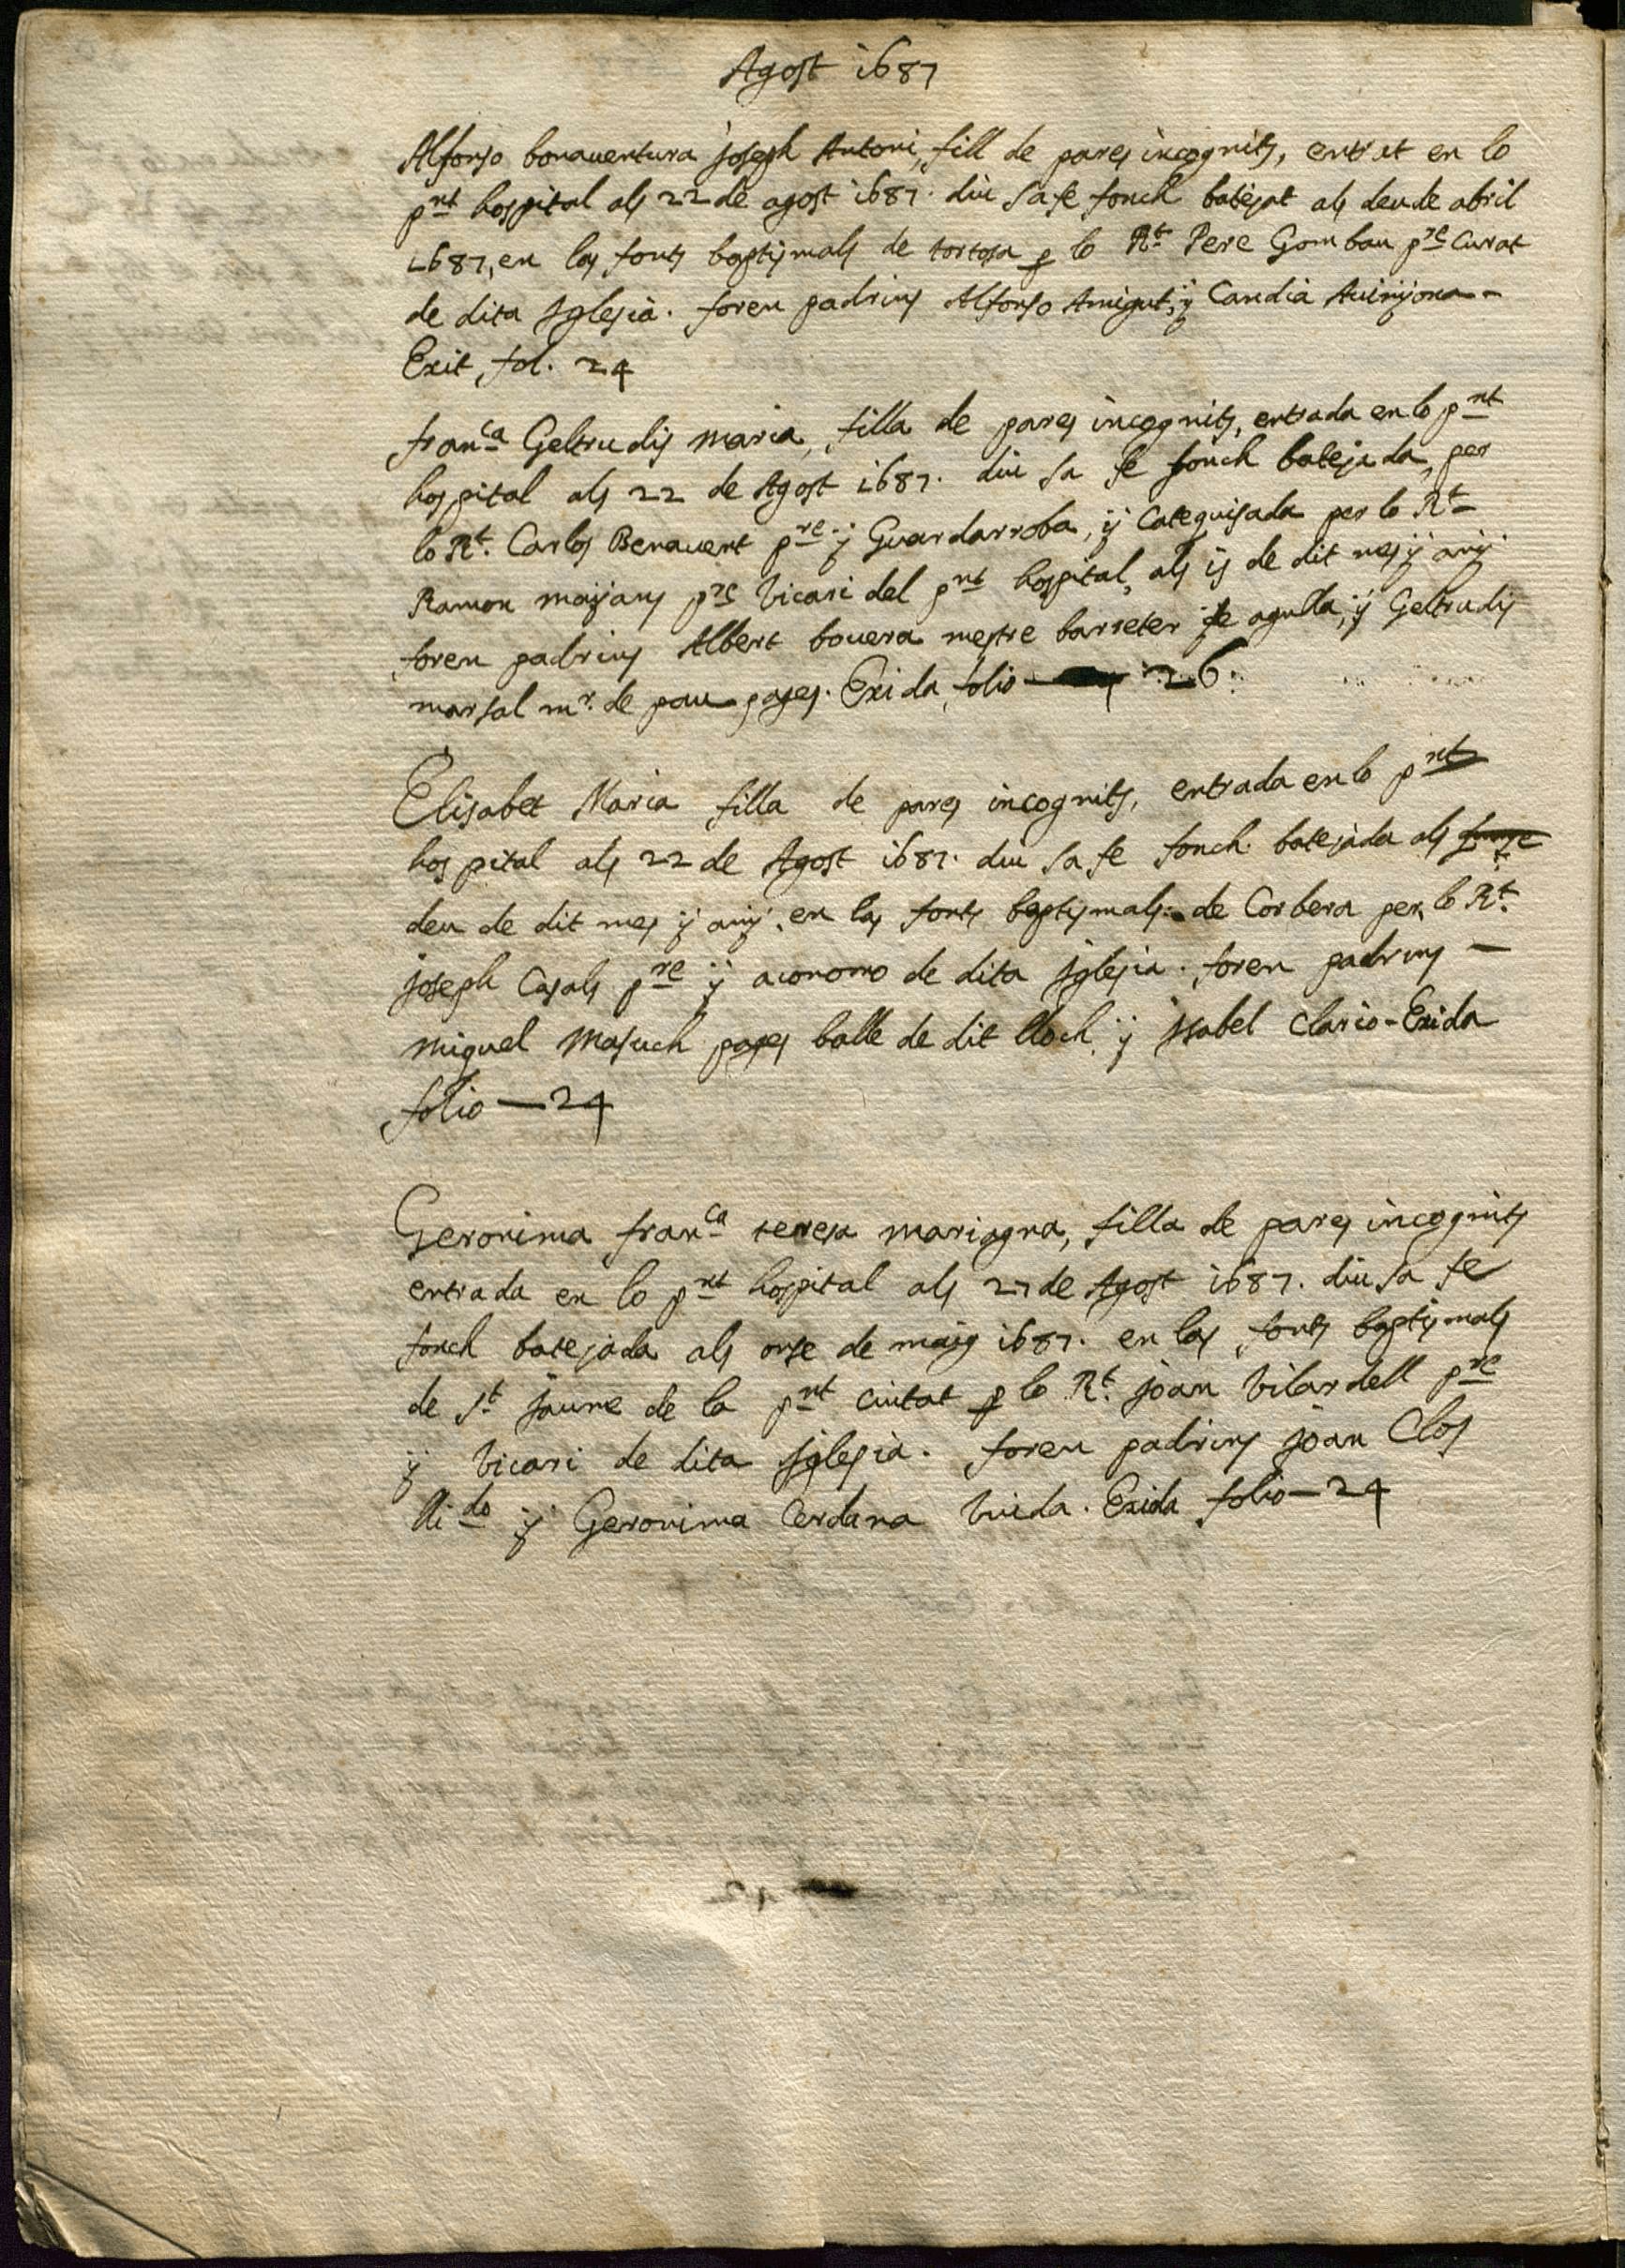 Agost 1687
Alfonso bonauentura joseph Antoni, fill de pares incognits, entrat en lo
pnt hospital als 22 de agost 1687. diu sa fe fonch batejat als deu de abril
1687, en las fonts baptismals de tortosa p lo Rt Pere Gombau pre Curat
de dita Iglesia. foren padrins Alfonso Amigut, ÿ Candia
Exit, fol. 24
franca Geltrudis maria, filla de pares incognits, entrada en lo pnt
hospital als 22 de Agost 1687. diu sa fe fonch batejada, per
lo Rt. Carlos Benauent pre ÿ Guardarroba, ÿ Catequisada per lo Rt
Ramon maÿans pre Vicari del pnt hospital, als 15 de dit mes ÿ anÿ
foren padrins Albert bouera mestre barreter de agulla, ÿ Geltrudis
marsal mr. de pau pages. Exida, folio 26.
Elisabet Maria filla de pares incognits, entrada en lo pnt
hospital als 22 de Agost 1687. diu sa fe fonch batejada als
deu de dit mes ÿ anÿ, en las fonts baptismals de Corbera per lo Rt.
joseph Casals pre ÿ aconomo de dita Iglesia. foren padrins —
miquel Masuch pages balle de dit lloch ÿ Isabel Clario - Exida
folio — 24
Geronima franca teresa mariagna, filla de pares incognits
entrada en lo pnt hospital als 27 de Agost 1687. diu sa fe
fonch batejada als onse de maig 1687. en las fonts baptismals
de St jaume de la pnt Ciutat p lo Rt. joan Vilardell pre
ÿ Vicari de dita Iglesia. foren padrins joan Clos
ÿ Geronima Cerdana Viuda. Exida folio — 24